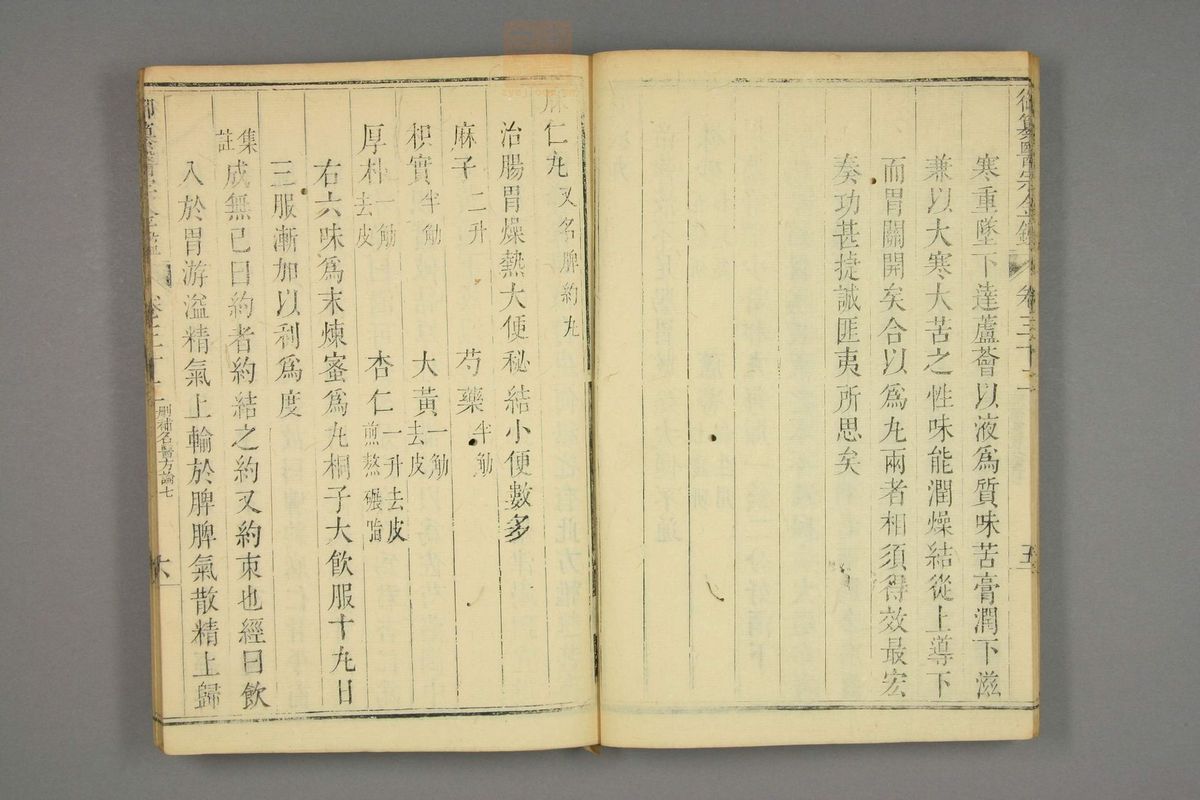 御纂醫宗金鑑 卷三十二 五
寒重墜下達蘆薈以液為質味苦膏潤下滋
兼以大寒大苦之性味能潤燥結從上導下
而胃關開矣合以為九兩者相須得效最宏
奏功甚捷誠匪夷所思矣
麻仁九 又名脾約九
治腸胃燥熱大便秘結小便數多
麻子 二升 芍藥 半觔
枳實 半觔 大黃 一觔去皮
厚朴 一觔去皮 杏仁 一升去皮煎熬碾脂
右六味為末煉蜜為九桐子大飲服十九日
三服漸加以利為度
集註 成無已曰約者約結之約又約束也經曰飲
入於胃游溢精氣上輸於脾脾氣散精上歸
御纂醫宗金鑑 卷三十二 刪補名醫方論七 六